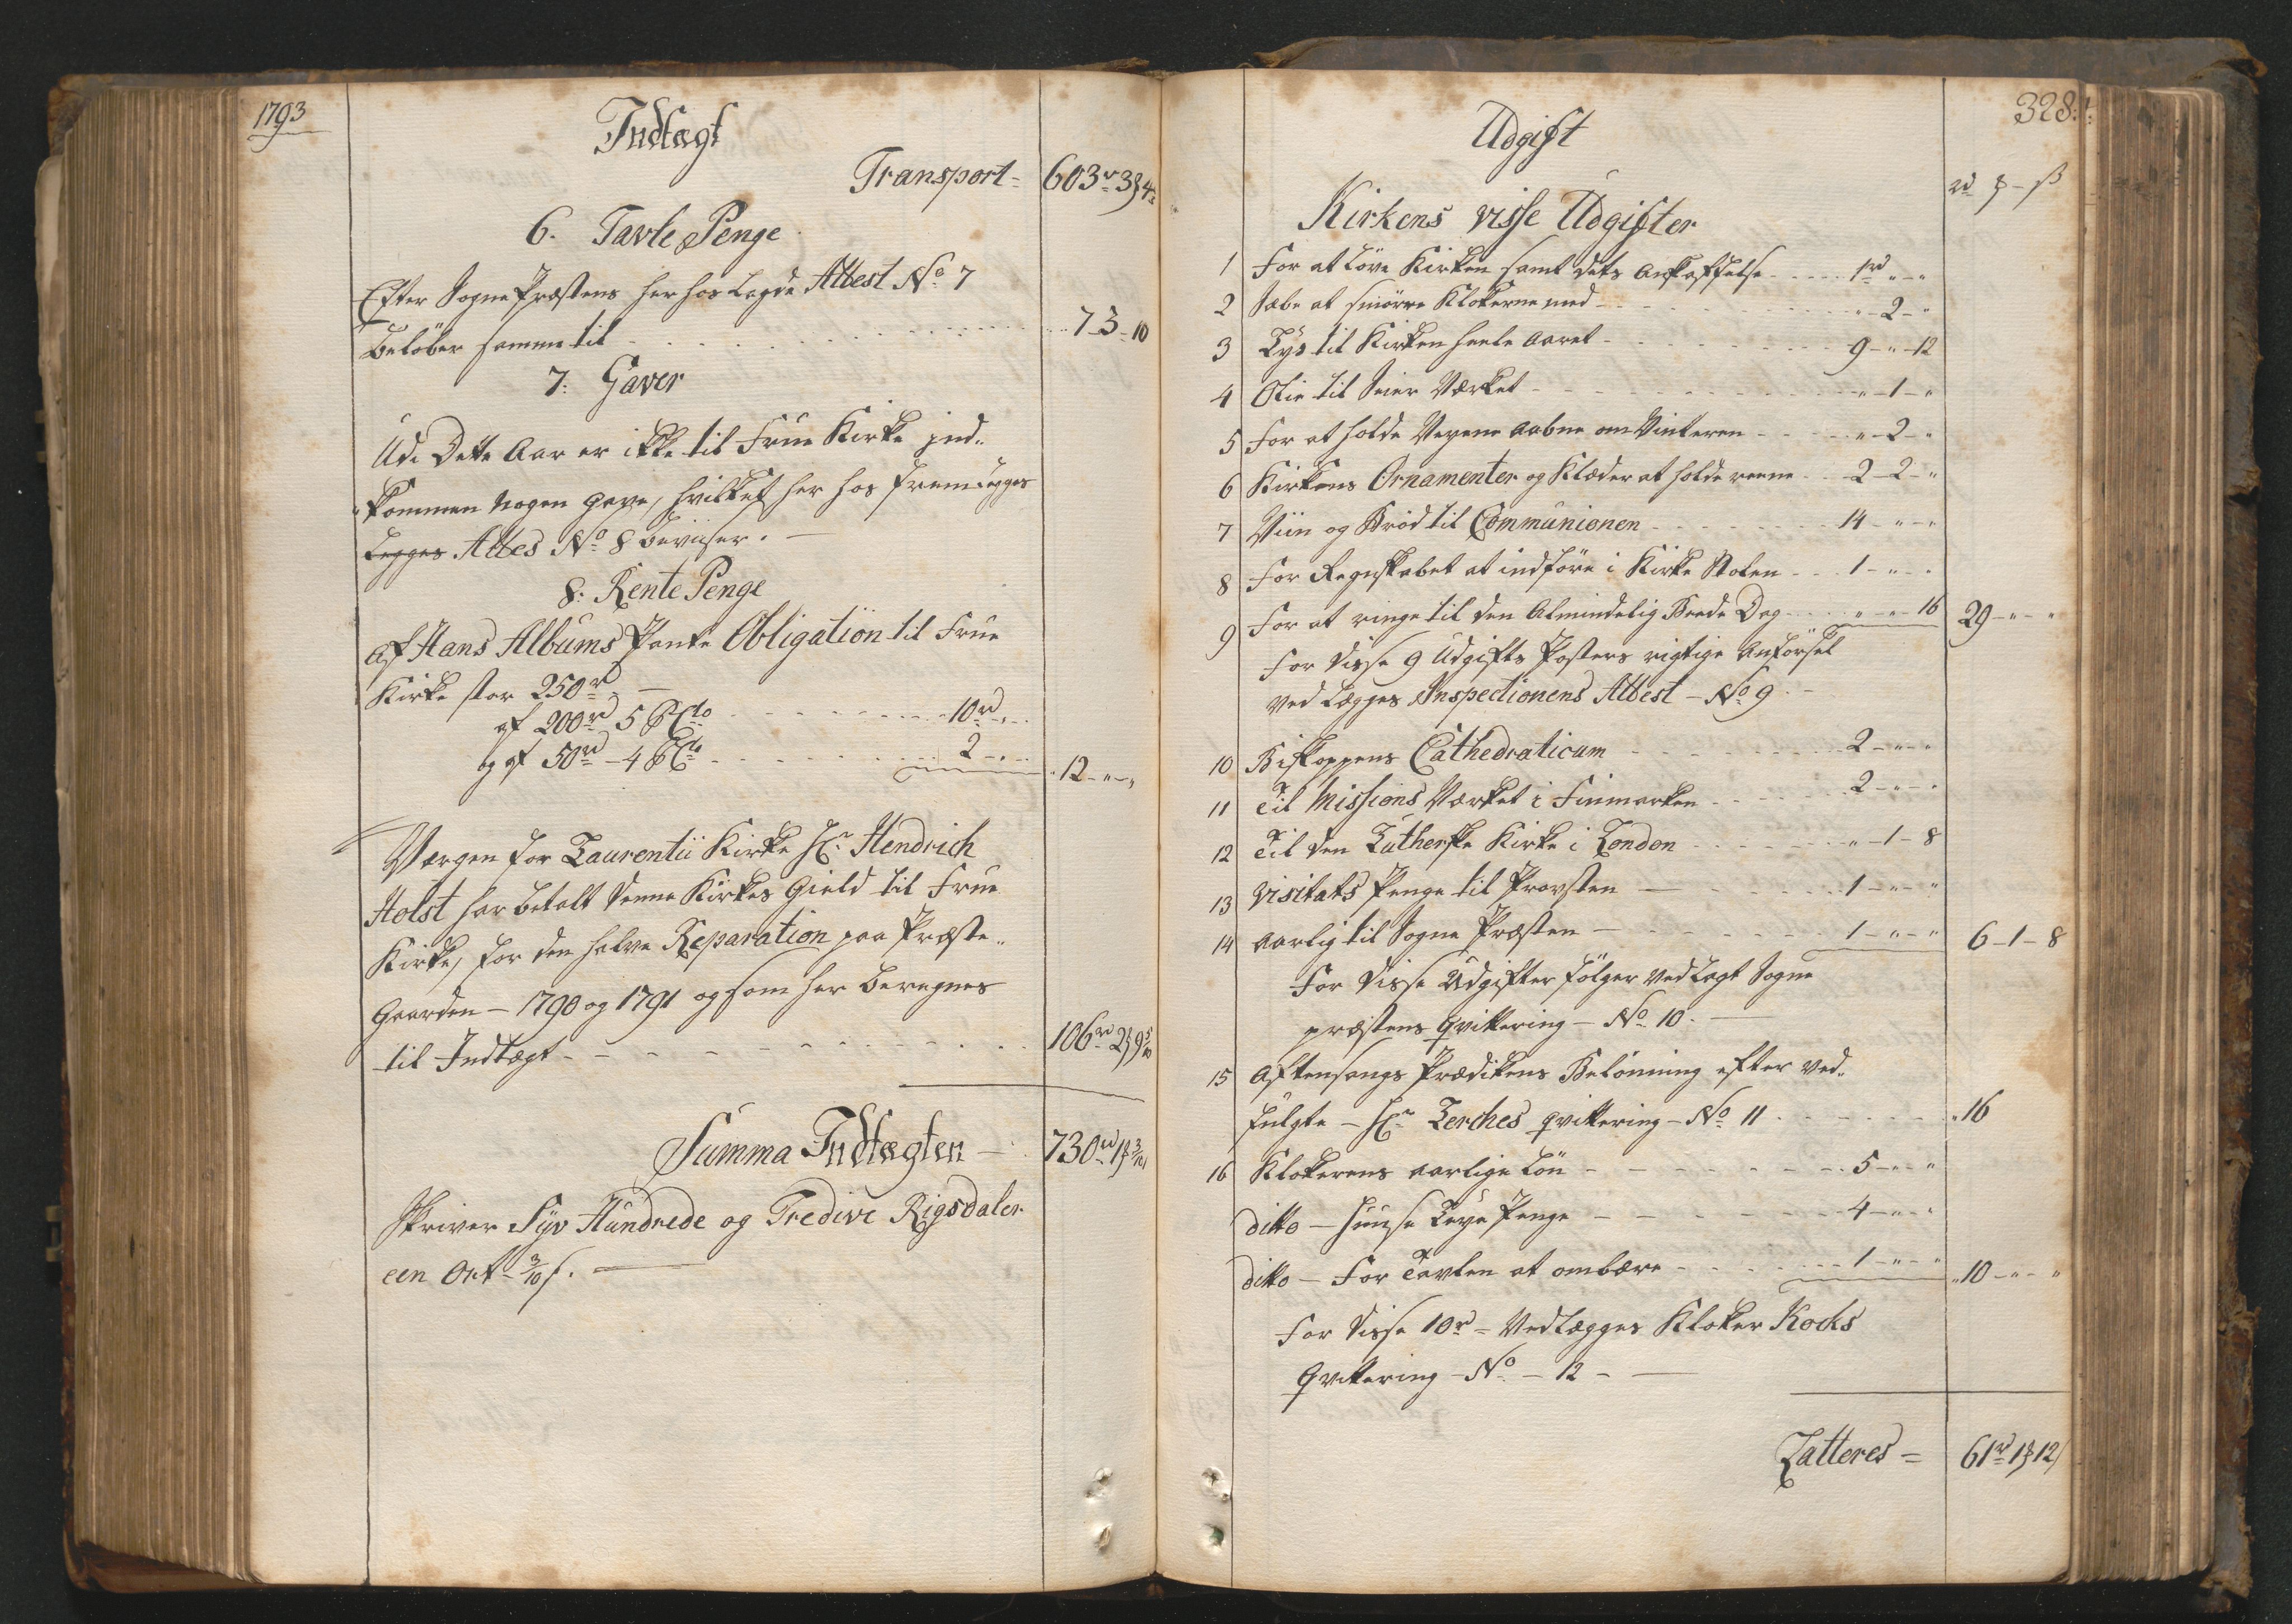 1793
Indtægt
Transport = 603rd 3 ʒ 4 s
6. Tavle Penge
Efter Sogne Præstens herhos Lagde Attest No 7
beløber sammen til 7-3-10
7: Gaver
Udi Dette Aar er ikke til Frue Kirke ind-
"kommen nogen gave, hvilket her hos fremlegges
Legges Attes No 8 beviiser. —
8: Rente Penge
af Hans Albums Pante Obligation til Frue
Kirke stor 250rd. —
af 200rd 5 PCto 10rd " "
og af 50rd - 4 PCto 2 - " - "
12 - " - "
Værgen for Laurentii Kirke Hr Hendrich
Holst har betalt denne Kirkes Gield til Frue
Kirke, for den halve Reparation paa Præste-
Gaarden - 1790 og 1791 og som her beregnes
til Indtægt 106rd 2 ʒ 9 5/10
Summa Indtægten — 730rd 1 ʒ 3/10 s
Skriver Syv Hundrede og Tredive Rigsdaler
een Ort - 3/10 s. —
328:
Udgift
rd ʒ - ß
Kirkens visse Udgifter
1 For at Løve Kirken samt dets anskaffelse 1rd " - "
2 Sæbe at smørre Klokerne med " - 2 - "
3 Lys til Kirken heele Aaret 9 - " - 12
4 Olie til Seier Værket " - 1 - "
5 For at holde Veyene aabne om Vinteren " - 2 - "
6 Kirkens Ornamenter og Klæder at holde reene 2 - 2 - "
7 Viin og Brød til Communionen 14 - " - "
8 For Regnskabet at indføre i Kirke Stolen 1 - " - "
9 For at ringe til den Almindelig Beede Dag " - " - 16 29 - " - "
For disse 9 Udgifts Posters rigtige anførsel
ved Lægges Inspectionens Attest - No 9. -
10 Biskoppens Cathedraticum 2 - " - "
11 Til Missions Værket i Finmarken 2 - " - "
12 Til den Lutherske Kirke i London " - 1 - 8
13 Visitats Penge til Provsten 1 - " - "
14 aarlig til Sogne Præsten 1 - " - " 6 - 1 - 8
For disse Udgifter følger vedlagt Sogne
præstens Qvittering - No 10. —
15 Aftensangs Prædikens Belønning efter ved-
fulgte - Hr Lerches qvittering - No 11 16
16 Klokerens aarlige Løn 5 - " - "
ditto - Huuse Leye Penge 4 - " - "
ditto - For Tavlen at ombære 1 - " - " 10 - " - "
For disse 10rd = vedlægges Kloker Kocks
Qvittering - No - 12 - —
Latteres = 61rd 1 ʒ 12 s